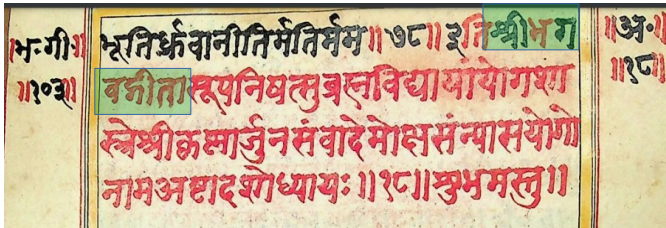 ॥भ॰गी॰
॥१०३॥
भूतिर्ध्रुवानीतिर्मतिर्मम॥७८॥इतिश्रीभग
वद्गीतासूपनिषत्सुब्रह्मविद्यायांयोगशा
स्त्रेश्रीकृष्णार्जुनसंवादेमोक्षसंन्यासयोगो
नामअष्टादशोध्यायः॥१८॥शुभमस्तु॥
॥अ॰
॥१८॥